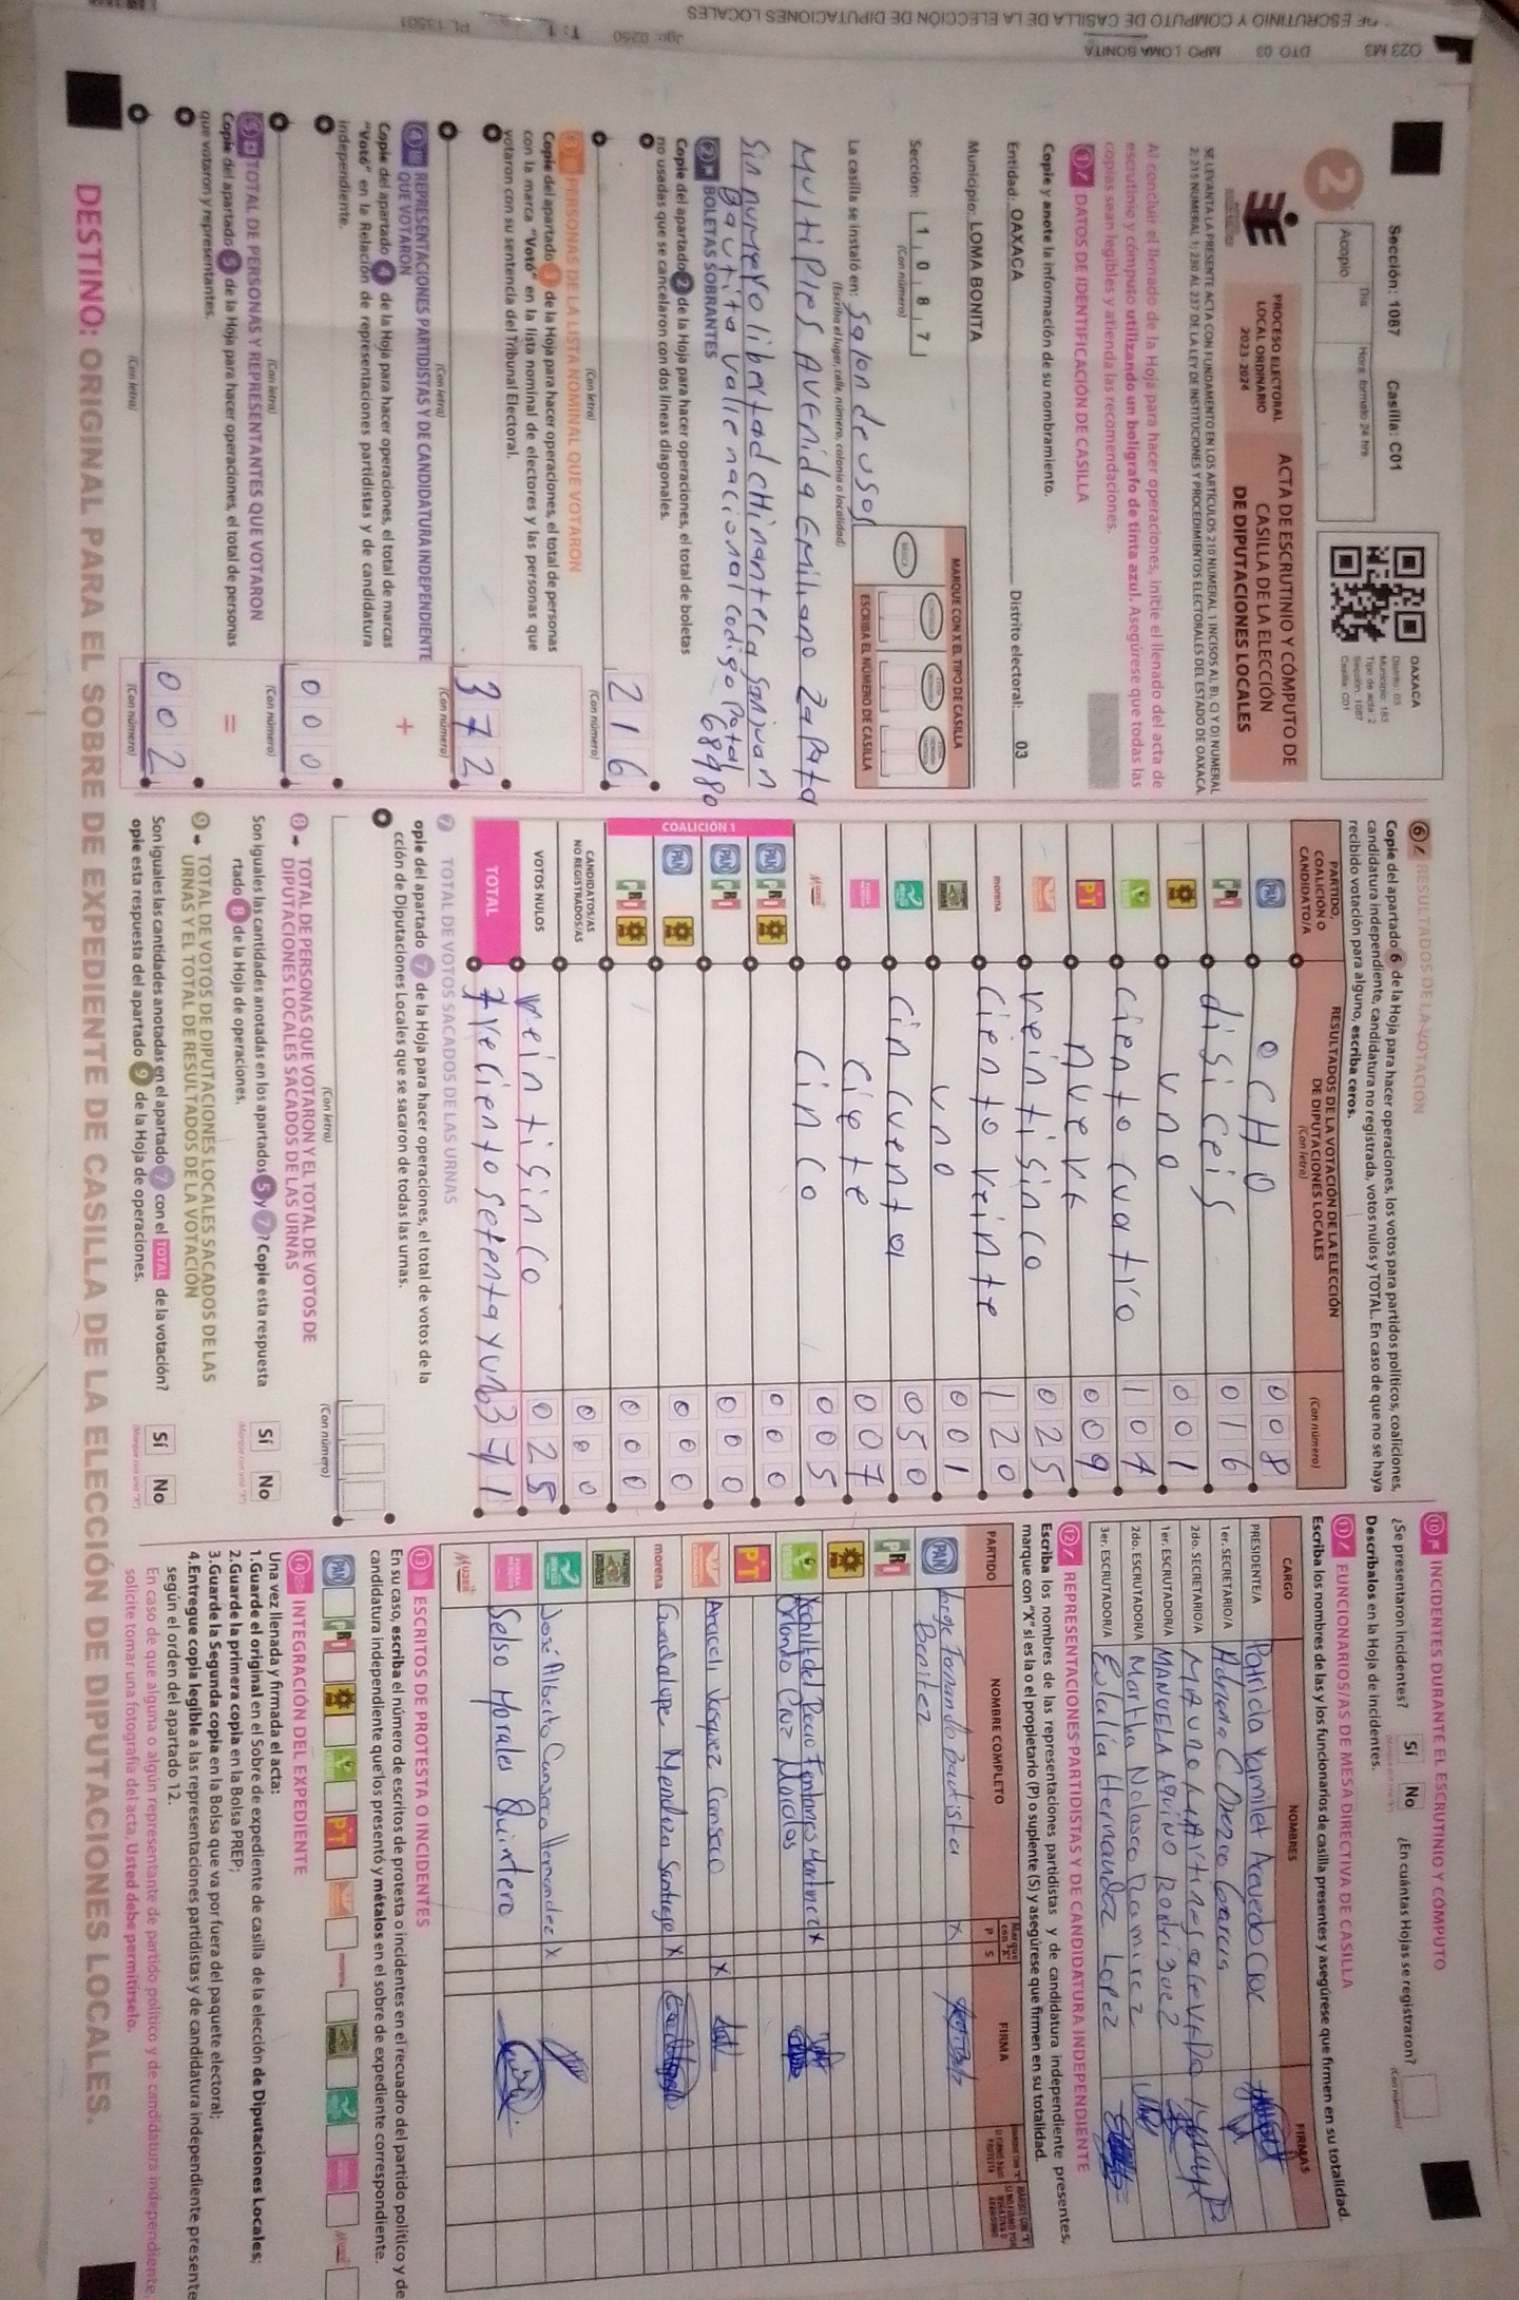 Sección: 1087 Casilla: C01
2
Acopio
Día
Hora: formato 24 hrs
OAXACA
Distrito: 03
Municipio: 183
Tipo de acta: 2
Sección: 1087
Casilla: C01
PROCESO ELECTORAL
LOCAL ORDINARIO
2023-2024
ACTA DE ESCRUTINIO Y CÓMPUTO DE
CASILLA DE LA ELECCIÓN
DE DIPUTACIONES LOCALES
SE LEVANTA LA PRESENTE ACTA CON FUNDAMENTO EN LOS ARTÍCULOS 210 NUMERAL 1 INCISOS A), B), C) Y D) NUMERAL
2; 215 NUMERAL 1; 230 AL 237 DE LA LEY DE INSTITUCIONES Y PROCEDIMIENTOS ELECTORALES DEL ESTADO DE OAXACA.
Al concluir el llenado de la Hoja para hacer operaciones, inicie el llenado del acta de
escrutinio y cómputo utilizando un bolígrafo de tinta azul. Asegúrese que todas las
copias sean legibles y atienda las recomendaciones.
1 DATOS DE IDENTIFICACIÓN DE CASILLA
Copie y anote la información de su nombramiento.
Entidad: OAXACA Distrito electoral: 03
Municipio: LOMA BONITA
Sección: 1 0 8 7
(Con número)
MARQUE CON X EL TIPO DE CASILLA
BÁSICA
ESCRIBA EL NÚMERO DE CASILLA
La casilla se instaló en: Salon de usos
(Escriba el lugar, calle, número, colonia o localidad)
Multiples Avenida Emiliano Zapata
Sin numero libertad chinanteca san juan
bautita valle nacional codigo Patal
68480
2 BOLETAS SOBRANTES
Copie del apartado 2 de la Hoja para hacer operaciones, el total de boletas
no usadas que se cancelaron con dos líneas diagonales.
216
(Con letra) (Con número)
3 PERSONAS DE LA LISTA NOMINAL QUE VOTARON
Copie del apartado 3 de la Hoja para hacer operaciones, el total de personas
con la marca "Votó" en la lista nominal de electores y las personas que
votaron con su sentencia del Tribunal Electoral.
372
(Con letra) (Con número)
4 REPRESENTACIONES PARTIDISTAS Y DE CANDIDATURA INDEPENDIENTE
QUE VOTARON
+
Copie del apartado 4 de la Hoja para hacer operaciones, el total de marcas
"Votó" en la Relación de representaciones partidistas y de candidatura
independiente.
000
(Con letra) (Con número)
5 TOTAL DE PERSONAS Y REPRESENTANTES QUE VOTARON
=
Copie del apartado 5 de la Hoja para hacer operaciones, el total de personas
que votaron y representantes.
002
(Con letra) (Con número)
6 RESULTADOS DE LA VOTACIÓN
Copie del apartado 6 de la Hoja para hacer operaciones, los votos para partidos políticos, coaliciones,
candidatura independiente, candidatura no registrada, votos nulos y TOTAL. En caso de que no se haya
recibido votación para alguno, escriba ceros.
PARTIDO,
COALICIÓN O
CANDIDATO/A
RESULTADOS DE LA VOTACIÓN DE LA ELECCIÓN
DE DIPUTACIONES LOCALES
(Con letra)
(Con número)
PAN ocHo 008
PRI disiceis 016
PRD uno 001
ciento cuatro 104
PT nueve 009
veintisinco 025
morena ciento veinte 120
uno 001
cincuenta 050
ciete 007
cinco 005
COALICIÓN 1
PAN PRI PRD 000
PAN PRI 000
PAN PRD 000
PRI PRD 000
CANDIDATOS/AS
NO REGISTRADOS/AS 000
VOTOS NULOS veintisinco 025
TOTAL treciento setenta y uno 371
7 TOTAL DE VOTOS SACADOS DE LAS URNAS
opie del apartado 7 de la Hoja para hacer operaciones, el total de votos de la
cción de Diputaciones Locales que se sacaron de todas las urnas.
(Con letra) (Con número)
8 TOTAL DE PERSONAS QUE VOTARON Y EL TOTAL DE VOTOS DE
DIPUTACIONES LOCALES SACADOS DE LAS URNAS
Son iguales las cantidades anotadas en los apartados 5 y 7? Copie esta respuesta
rtado 8 de la Hoja de operaciones.
Sí No
9 TOTAL DE VOTOS DE DIPUTACIONES LOCALES SACADOS DE LAS
URNAS Y EL TOTAL DE RESULTADOS DE LA VOTACIÓN
Son iguales las cantidades anotadas en el apartado 7 con el TOTAL de la votación?
opie esta respuesta del apartado 9 de la Hoja de operaciones.
Sí No
10 INCIDENTES DURANTE EL ESCRUTINIO Y CÓMPUTO
¿Se presentaron incidentes? Sí No ¿En cuántas Hojas se registraron?
(Con número)
Descríbalos en la Hoja de incidentes.
11 FUNCIONARIOS/AS DE MESA DIRECTIVA DE CASILLA
Escriba los nombres de las y los funcionarios de casilla presentes y asegúrese que firmen en su totalidad.
CARGO NOMBRES FIRMAS
PRESIDENTE/A Patricia Yamilet Acevedo Cruz
1er. SECRETARIO/A Adriana C Orozco Garcia
2do. SECRETARIO/A
1er. ESCRUTADOR/A MANUELA AQUINO Rodriguez
2do. ESCRUTADOR/A Martha Nolasco Ramirez
3er. ESCRUTADOR/A Eulalia Hernandez Lopez
12 REPRESENTACIONES PARTIDISTAS Y DE CANDIDATURA INDEPENDIENTE
Escriba los nombres de las representaciones partidistas y de candidatura independiente presentes,
marque con "X" si es la o el propietario (P) o suplente (S) y asegúrese que firmen en su totalidad.
PARTIDO NOMBRE COMPLETO Marque con "X" P S FIRMA
PAN Jorge Fernando Bautista X
Benitez
PRI
PRD
Xochilt del Rocio Fontanes Martinez X
Orlando Cruz Morales
PT
Araceli Vasquez Canseco X
morena Guadalupe Mendoza Santiago X
José Alberto Canseco Hernandez X
Selso Morales Quintero
13 ESCRITOS DE PROTESTA O INCIDENTES
En su caso, escriba el número de escritos de protesta o incidentes en el recuadro del partido político y de
candidatura independiente que los presentó y métalos en el sobre de expediente correspondiente.
PAN PRI PRD PT morena
14 INTEGRACIÓN DEL EXPEDIENTE
Una vez llenada y firmada el acta:
1.Guarde el original en el Sobre de expediente de casilla de la elección de Diputaciones Locales;
2.Guarde la primera copia en la Bolsa PREP;
3.Guarde la Segunda copia en la Bolsa que va por fuera del paquete electoral;
4.Entregue copia legible a las representaciones partidistas y de candidatura independiente presente
según el orden del apartado 12.
En caso de que alguna o algún representante de partido político y de candidatura independiente,
solicite tomar una fotografía del acta, Usted debe permitírselo.
DESTINO: ORIGINAL PARA EL SOBRE DE EXPEDIENTE DE CASILLA DE LA ELECCIÓN DE DIPUTACIONES LOCALES.
023 M3 DTO 03 MPO LOMA BONITA
DE ESCRUTINIO Y COMPUTO DE CASILLA DE LA ELECCIÓN DE DIPUTACIONES LOCALES
Jgo: 0250 T: 1 PL 13501